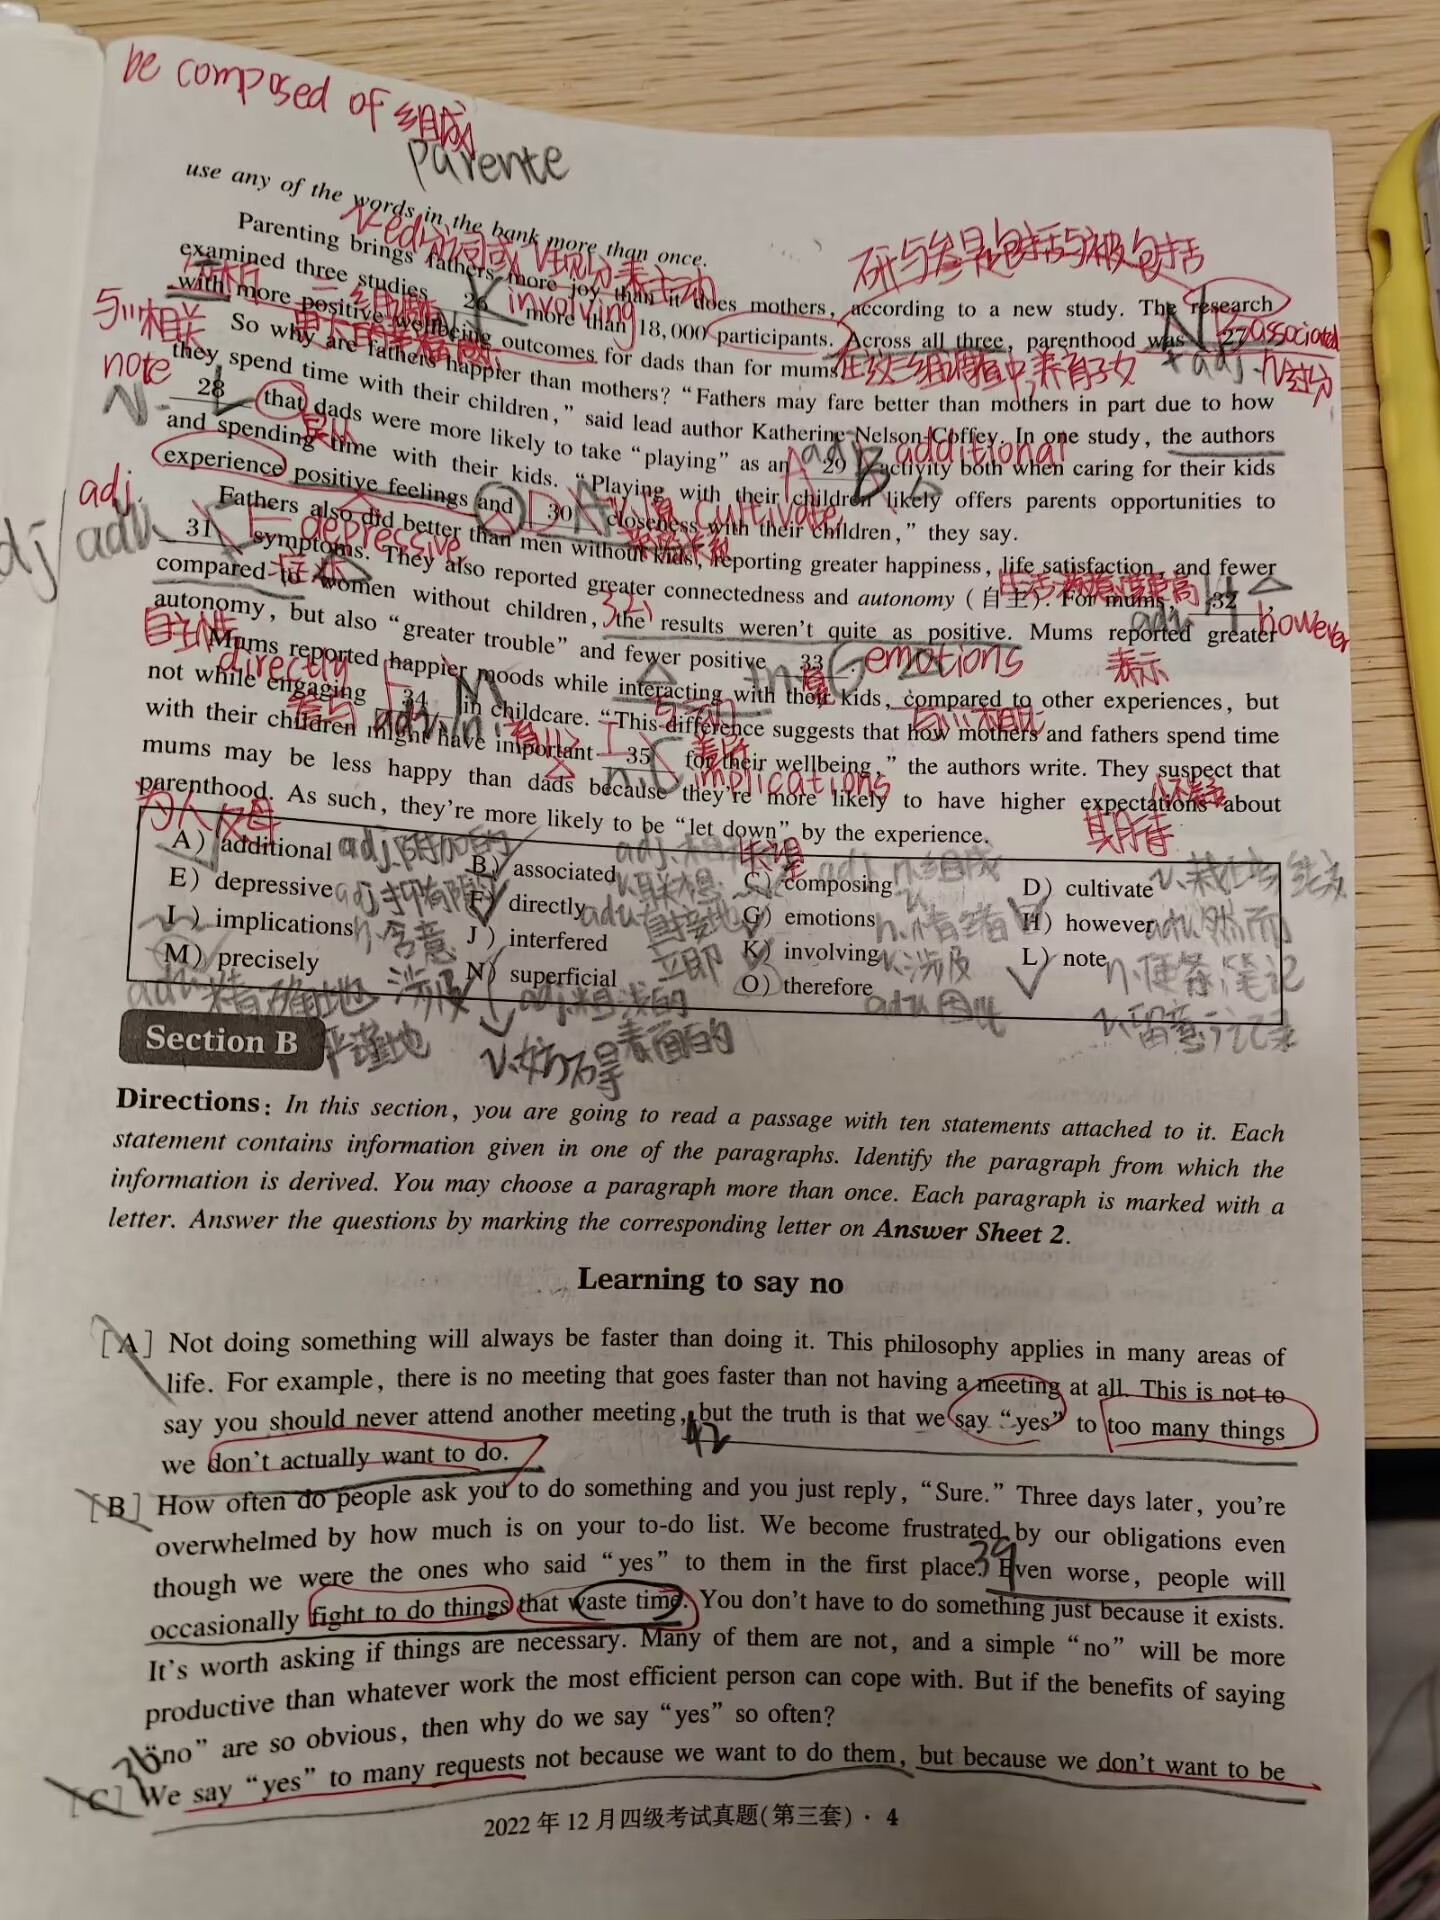 be composed of 组成
parente
use any of the words in the bank more than once.
Parenting brings fathers more joy than it does mothers, according to a new study. The research
examined three studies 26 more than 18,000 participants. Across all three, parenthood was 27
with more positive wellbeing outcomes for dads than for mums.
So why are fathers happier than mothers? “Fathers may fare better than mothers in part due to how
they spend time with their children,” said lead author Katherine Nelson-Coffey. In one study, the authors
28 that dads were more likely to take “playing” as an 29 activity both when caring for their kids
and spending time with their kids. “Playing with their children likely offers parents opportunities to
experience positive feelings and 30 closeness with their children,” they say.
Fathers also did better than men without kids, reporting greater happiness, life satisfaction, and fewer
31 symptoms. They also reported greater connectedness and autonomy (自主). For mums, 32,
compared to women without children, the results weren't quite as positive. Mums reported greater
autonomy, but also “greater trouble” and fewer positive 33.
Mums reported happier moods while interacting with their kids, compared to other experiences, but
not while engaging 34 in childcare. “This difference suggests that how mothers and fathers spend time
with their children might have important 35 for their wellbeing,” the authors write. They suspect that
mums may be less happy than dads because they're more likely to have higher expectations about
parenthood. As such, they're more likely to be “let down” by the experience.
K involving
与...相关
associated
note
N
additional
adj.
cultivate
depressive
however
emotions
表示
directly
implications
为人父母
其所著
A) additional B) associated C) composing D) cultivate
E) depressive F) directly G) emotions H) however
I) implications J) interfered K) involving L) note
M) precisely N) superficial O) therefore
adj.附加的
n.组成
adv.直接地
n.情绪
adv.然而
n.含意
立即
v.涉及
n.便条,笔记
adv.精确地
adj.粗浅的
表面的
adv.因此
v.妨碍
Section B
Directions: In this section, you are going to read a passage with ten statements attached to it. Each
statement contains information given in one of the paragraphs. Identify the paragraph from which the
information is derived. You may choose a paragraph more than once. Each paragraph is marked with a
letter. Answer the questions by marking the corresponding letter on Answer Sheet 2.
Learning to say no
[A] Not doing something will always be faster than doing it. This philosophy applies in many areas of
life. For example, there is no meeting that goes faster than not having a meeting at all. This is not to
say you should never attend another meeting, but the truth is that we say “yes” to too many things
we don't actually want to do.
42
[B] How often do people ask you to do something and you just reply, “Sure.” Three days later, you're
overwhelmed by how much is on your to-do list. We become frustrated by our obligations even
though we were the ones who said “yes” to them in the first place. Even worse, people will
39
occasionally fight to do things that waste time. You don't have to do something just because it exists.
It's worth asking if things are necessary. Many of them are not, and a simple “no” will be more
productive than whatever work the most efficient person can cope with. But if the benefits of saying
“no” are so obvious, then why do we say “yes” so often?
36
[C] We say “yes” to many requests not because we want to do them, but because we don't want to be
2022年12月四级考试真题(第三套)·4